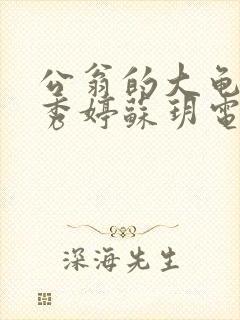 公翁的大龟
秀婷蘇玥電
深海先生